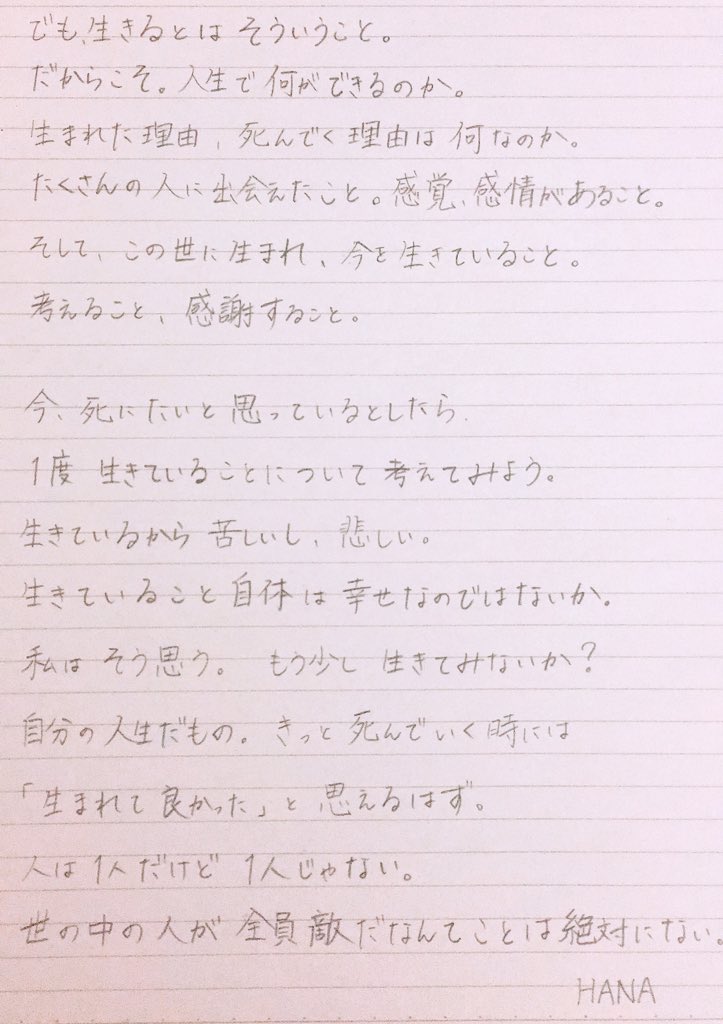 でも、生きるとは そういうこと。
だからこそ。人生で 何ができるのか。
生まれた理由、死んでく理由は 何なのか。
たくさんの人に出会えたこと。感覚、感情があること。
そして、この世に生まれ、今を生きていること。
考えること、感謝すること。
今、死にたいと思っているとしたら、
1度 生きていることについて 考えてみよう。
生きているから 苦しいし、悲しい。
生きていること自体は幸せなのではないか。
私は そう思う。 もう少し 生きてみないか?
自分の人生だもの。きっと 死んでいく時には
「生まれて良かった」と 思えるはず。
人は1人だけど 1人じゃない。
世の中の人が 全員敵だなんてことは絶対にない。
HANA